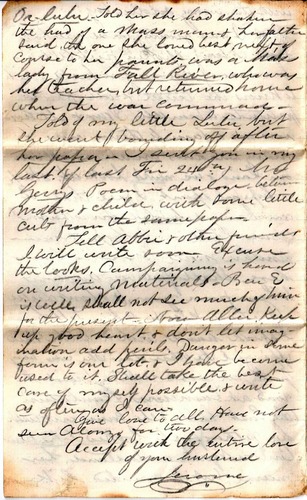 On Lulu. Told her she had shaken
the hand of a Mass man & her father
said the one she loved best next of
course to her parents was a Mass
lady from Fall River, who was
her teacher, but returned home
when the war commenced.
Told of my little Lulu but
she went bounding off after
her papa. I sent you in my
last of last Fri 24th
Poem in dialoge between
mother & child with some little
cuts from the same paper.
Tell Abbie & other friends
I will write soon. Excuse
the looks. Campaigning is hard
on writing materials.
is well, shall not see much of him
for the present. Now Allie Keep
up good heart, & don't let imag-
ination add perils. Danger in some
form is our lot, & I have become
used to it. I will take the best
care of myself possible, & write
as often as I can.
Give love to all. Have not
seen for two days.
Accept with the entire love
of your husband
Jerome